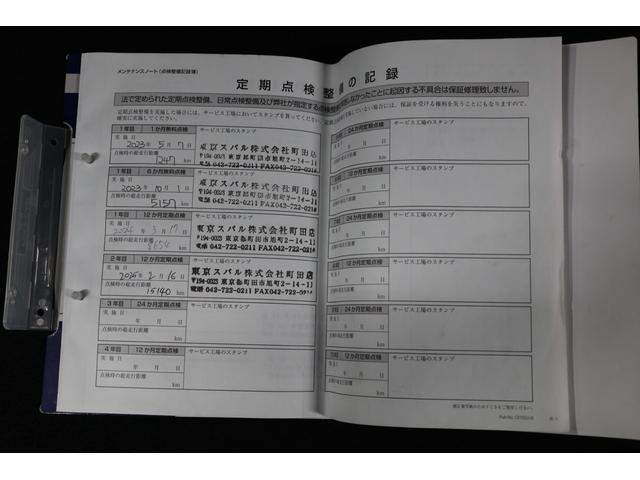 メンテナンスノート(点検整備記録簿)
定期点検整備の記録
法で定められた定期点検整備、日常点検整備及び弊社が指定する点検整備
しなかったことに起因する不具合は保証修理致しません。
定期点検整備を実施した場合には、サービス工場においてスタンプを貰ってください。
確実に実施してください。
していない場合には、保証を受ける権利を失うことにもなりますので、
1年目 1か月無料点検 サービス工場のスタンプ
実施日
2023年5月7日
点検時の総走行距離
247 km
東京スバル株式会社町田店
〒194-0023 東京都町田市旭町2-14-11
電話 042-722-0211 FAX042-722-
1年目 6か月無料点検 サービス工場のスタンプ
実施日
2023年10月1日
点検時の総走行距離
5157 km
東京スバル株式会社町田店
〒194-0023 東京都町田市旭町2-14-11
電話 042-722-0211 FAX042-722-
1年目 12か月定期点検 サービス工場のスタンプ
実施日
2024年3月17日
点検時の総走行距離
km
東京スバル株式会社町田店
〒194-0023 東京都町田市旭町2-14-11
電話 042-722-0211 FAX042-722-
2年目 12か月定期点検 サービス工場のスタンプ
実施日
2025年2月16日
点検時の総走行距離
15140 km
東京スバル株式会社町田店
〒194-0023 東京都町田市旭町2-14-11
電話 042-722-0211 FAX042-722-
3年目 24か月定期点検 サービス工場のスタンプ
実施日
年 月 日
点検時の総走行距離
km
4年目 12か月定期点検 サービス工場のスタンプ
実施日
年 月 日
点検時の総走行距離
km
24か月定期点検 サービス工場のスタンプ
年 月 日
km
12か月定期点検 サービス工場のスタンプ
年 月 日
km
24か月定期点検 サービス工場のスタンプ
年 月 日
km
12か月定期点検 サービス工場のスタンプ
年 月 日
km
24か月定期点検 サービス工場のスタンプ
年 月 日
km
12か月定期点検 サービス工場のスタンプ
年 月 日
km